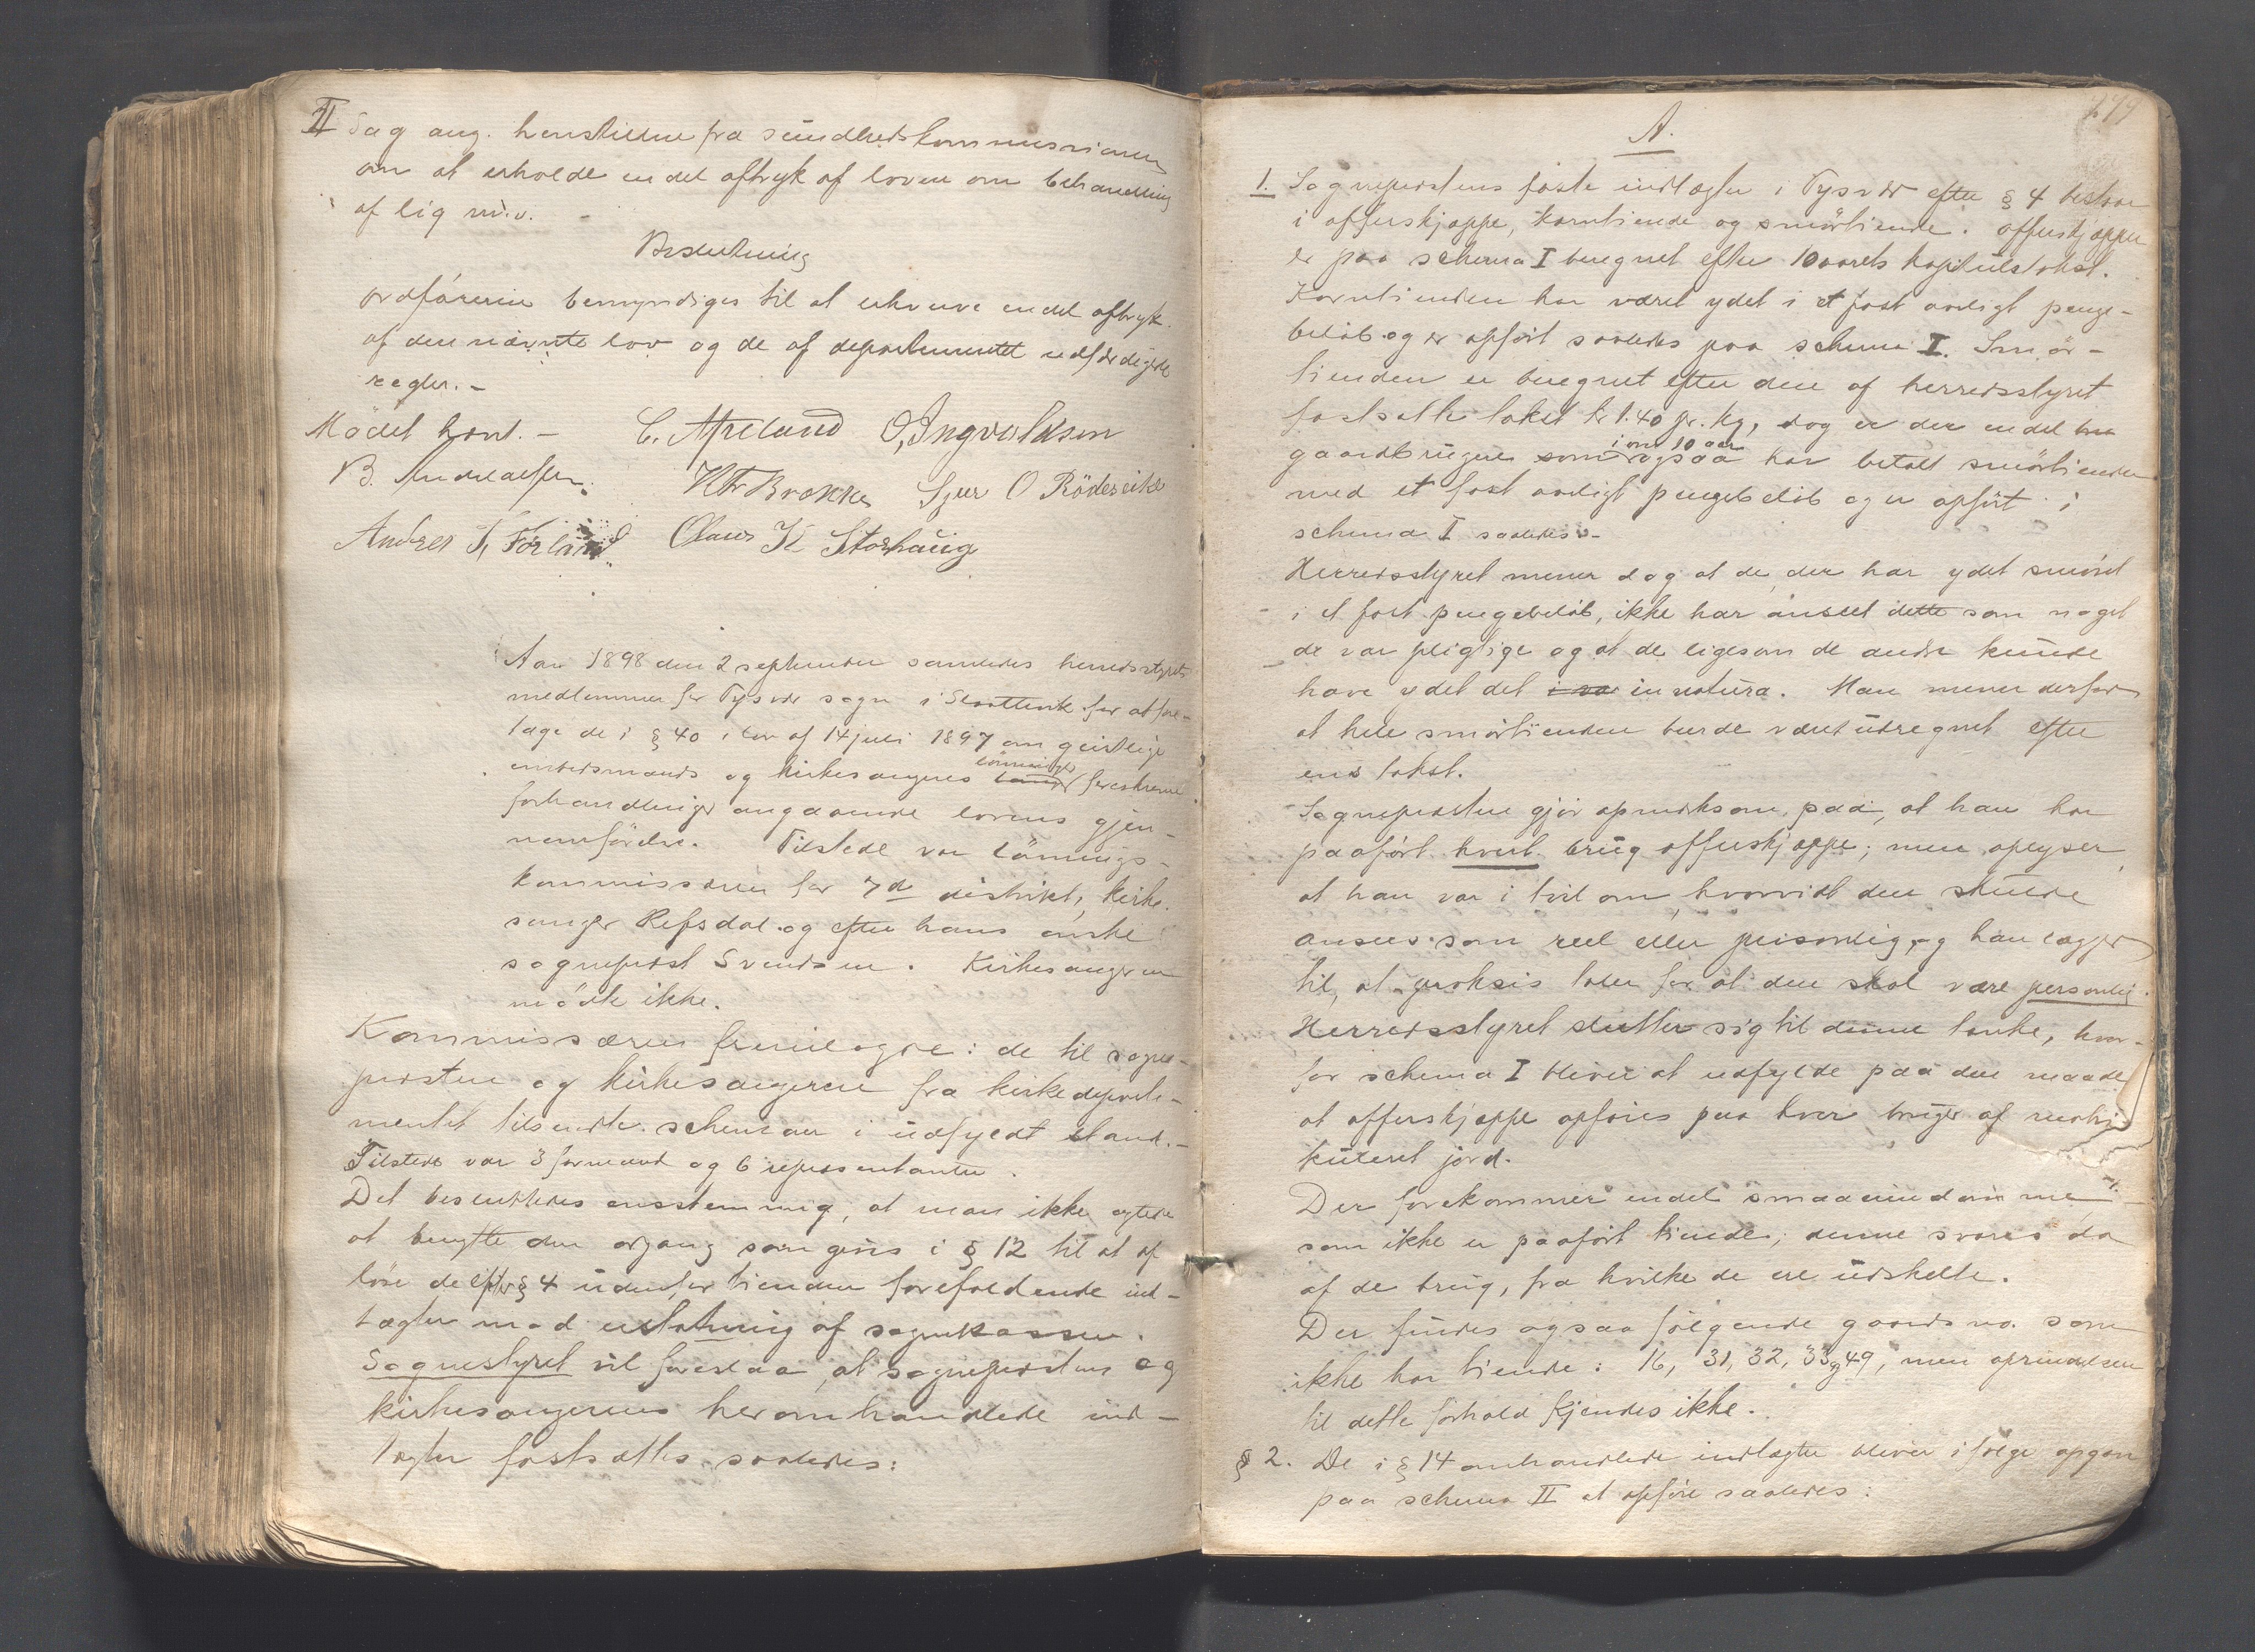 II Sag ang. henstillen fra sundhedskommissionen
om at erholde en del aftryk af loven om behandling
af lig m.v. -
Beslutning
ordføreren bemyndiges til at erhverve en del aftryk
af den nævnte lov og de af departementet udfærdigede
regler. -
Mødet hævet. - C. Apeland O. Ingvaldsen
B. Andreassen. Brakke Sjur O Rødseike
Andres T. Førland Olaus K Storhaug
Aar 1898 den 2 september samledes herredsstyrets
medlemmer for Tysvær sogn i Slaattevik for at fore-
tage de i § 40 i lov af 14 juli 1897 om geistlige
embedsmænds og kirkesangeres lønninger foreskrevne
forhandlinger angaaende lovens gjen-
nemførelse. Tilstede var lønnings-
kommissæren for 7de distrikt, kirke-
sanger Refsdal og efter hans ønske
sogneprest Svendsen. Kirkesangeren
mødte ikke.
Kommissæren fremlagde: de til sogne-
presten og kirkesangeren fra kirkedeparte-
mentet tilsendte schemaer i udfyldt stand. -
Tilstede var 3 formænd og 6 repræsentanter.
Det besluttedes enstemmig, at man ikke agtede
at benytte den adgang som gives i § 12 til at af
løse de efter § 4 udenfor tienden forefaldende ind-
tægter mod erstatning af sognekassen.
Sognestyret vil foreslaa, at sogneprestens og
kirkesangerens heromhandlede ind-
tægter fastsættes saaledes:
A.
1. Sogneprestens faste indtægter i Tysvær efter § 4 bestaar
i offerskjæppe, korntiende og smørtiende. Offerskjæppen
er paa schema I beregnet efter 10 aarets kapitelstakst.
Korntienden har været ydet i et fast aarligt penge-
beløb og er opført saaledes paa schema I. Smør-
tienden er beregnet efter den af herredsstyret
fastsatte takst kr 1.40 pr. kg, dog er der en del
gaardbrugere som i over 10 aar har betalt smørtienden
med et fast aarligt pengebeløb og er opført i
schema I saaledes. -
Herredsstyret mener dog at de, der har ydet smøret
i et fast pengebeløb, ikke har anseet dette som noget
de var pligtige og at de ligesom de andre kunde
have ydet det i na in natura. Man mener derfor
at hele smørtienden burde været udregnet efter
ens takst.
Sognepresten gjør opmerksom paa, at han har
paaført hvert brug offerskjæppe; men oplyser
at han var i tvil om, hvorvidt den skulde
ansees som reel eller personlig, og han lægger
til, at praksis taler for at den skal være personlig.
Herredsstyret slutter sig til denne tanke, hvor-
for schema I bliver at udfylde paa den maade
at offerskjæppe opføres paa hver bruger af matri-
kuleret jord.
Der forekommer endel smaaeiendomme,
som ikke er paaført tiende; denne svares da
af de brug, fra hvilke de ere udskilte.
Der findes ogsaa følgende gaards no. som
ikke har tiende: 16, 31, 32, 33 og 49, men oprindelsen
til dette forhold kjendes ikke.
§ 2. De i § 14 omhandlede indtægter bliver ifølge opgave
paa schema II at opføre saaledes: